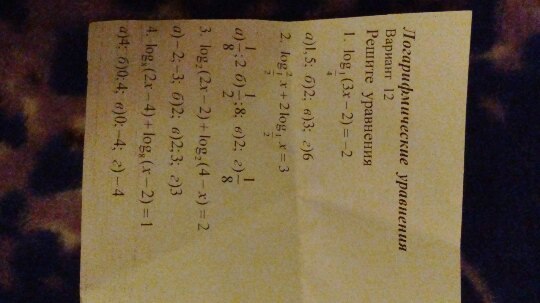 Логарифмические уравнения
Вариант 12
Решите уравнения
1. log_{1/4}(3x−2) = −2
а)1,5; б)2; в)3; г)6
2. log²_{1/2} x + 2 log_{1/2} x = 3
а) 1/8; 2 б) 1/2; 8; в)2; г) 1/8
3. log₂(2x−2) + log₂(4−x) = 2
а)−2;−3; б)2; в)2;3; г)3
4. log₈(2x−4) + log₈(x−2) = 1
а)4; б)0;4; в)0;−4; г)−4